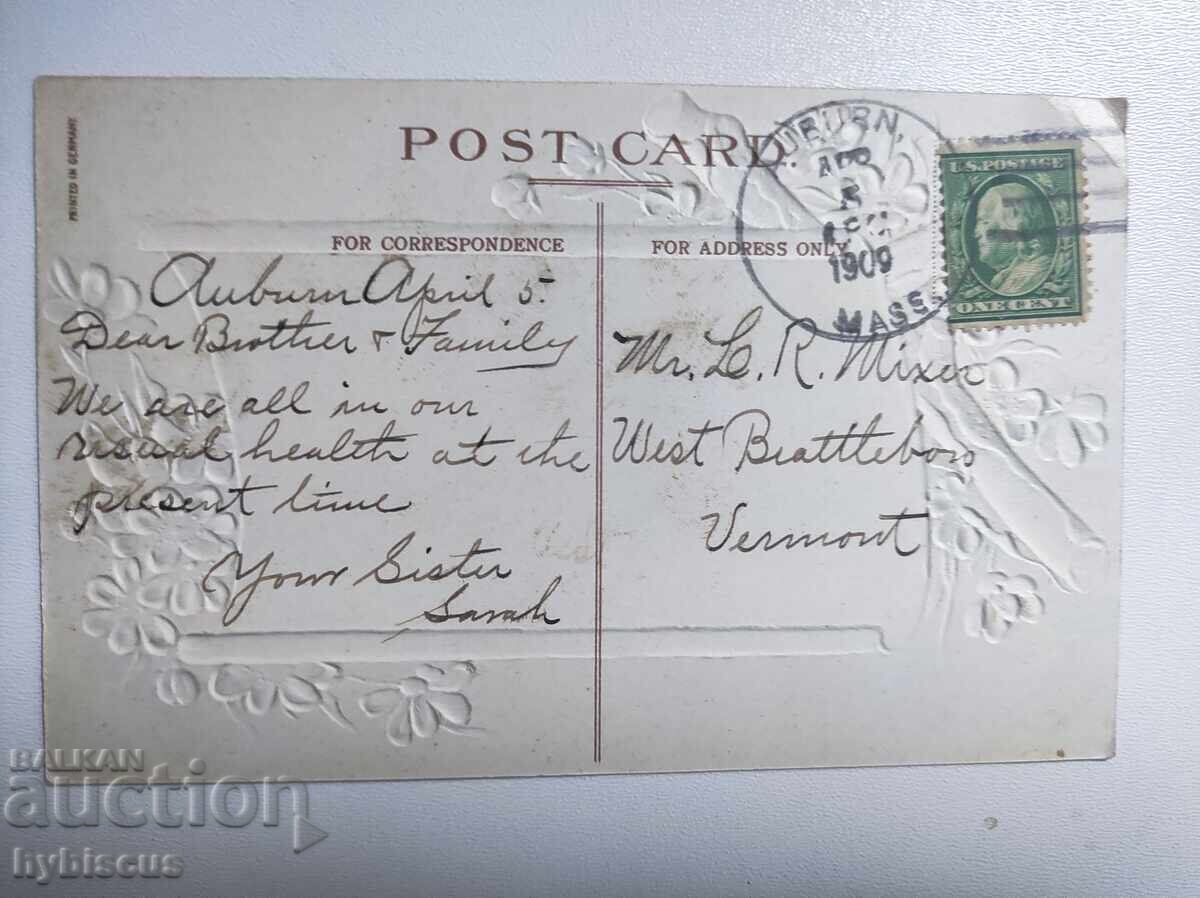 PRINTED IN GERMANY
POST CARD.
FOR CORRESPONDENCE
FOR ADDRESS ONLY
AUBURN,
APR
5
1909
MASS.
U.S. POSTAGE
ONE CENT
Auburn April 5.
Dear Brother & Family
We are all in our
usual health at the
present time
Your Sister
Sarah
Mr. L. R. Mixer
West Brattleboro
Vermont
BALKAN
auction
hybiscus